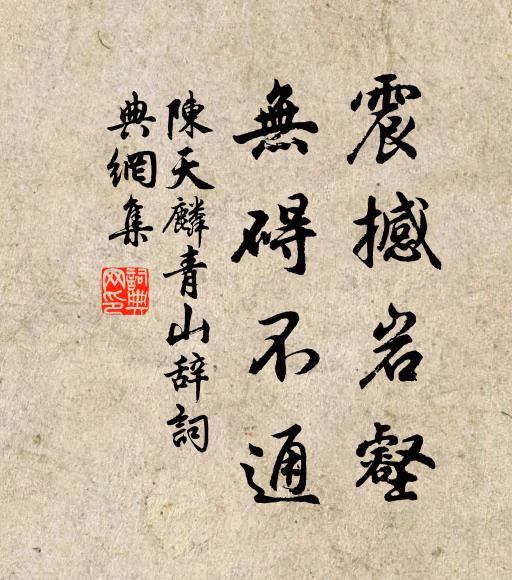 震撼岩壑
無碍不通
陳天麟青山辞詞
典網集
詞典網印